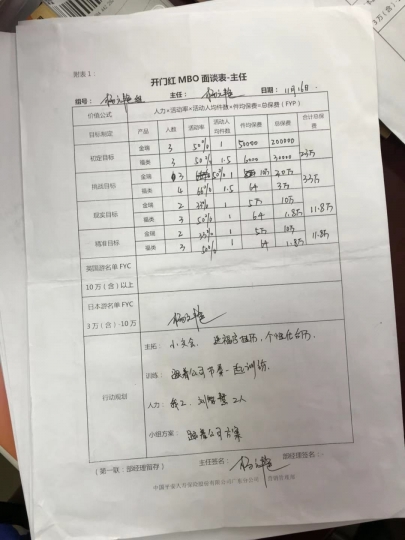 附表1：
开门红 MBO 面谈表-主任
组号： 主任： 日期：11月16日.
价值公式 人力×活动率×活动人均件数×件均保费=总保费（FYP）
目标制定 产品 人数 活动率 活动人均件数 件均保费 总保费 合计总保费
初定目标 金瑞 3 50% 1 50000 200000 23万
福类 3 50% 1.5 6000 30000
挑战目标 金瑞 3 1 10万 30万 33万
福类 4 66% 1.5 6千 3万
现实目标 金瑞 2 35% 1 5万 10万 11.8万
福类 3 50% 1 6千 1.8万
精准目标 金瑞 2 35% 1 5万 10万 11.8万
福类 3 50% 1 6千 1.8万
英国游名单 FYC
10万（含）以上
日本游名单 FYC
3万（含）-10万
行动规划
主拓：小交会、
训练：跟着公司节奏一
人力： 2人
小组方案：跟着公司方案
（第一联：部经理留存） 主任签名： 部经理签名：
中国平安人寿保险股份有限公司广东分公司